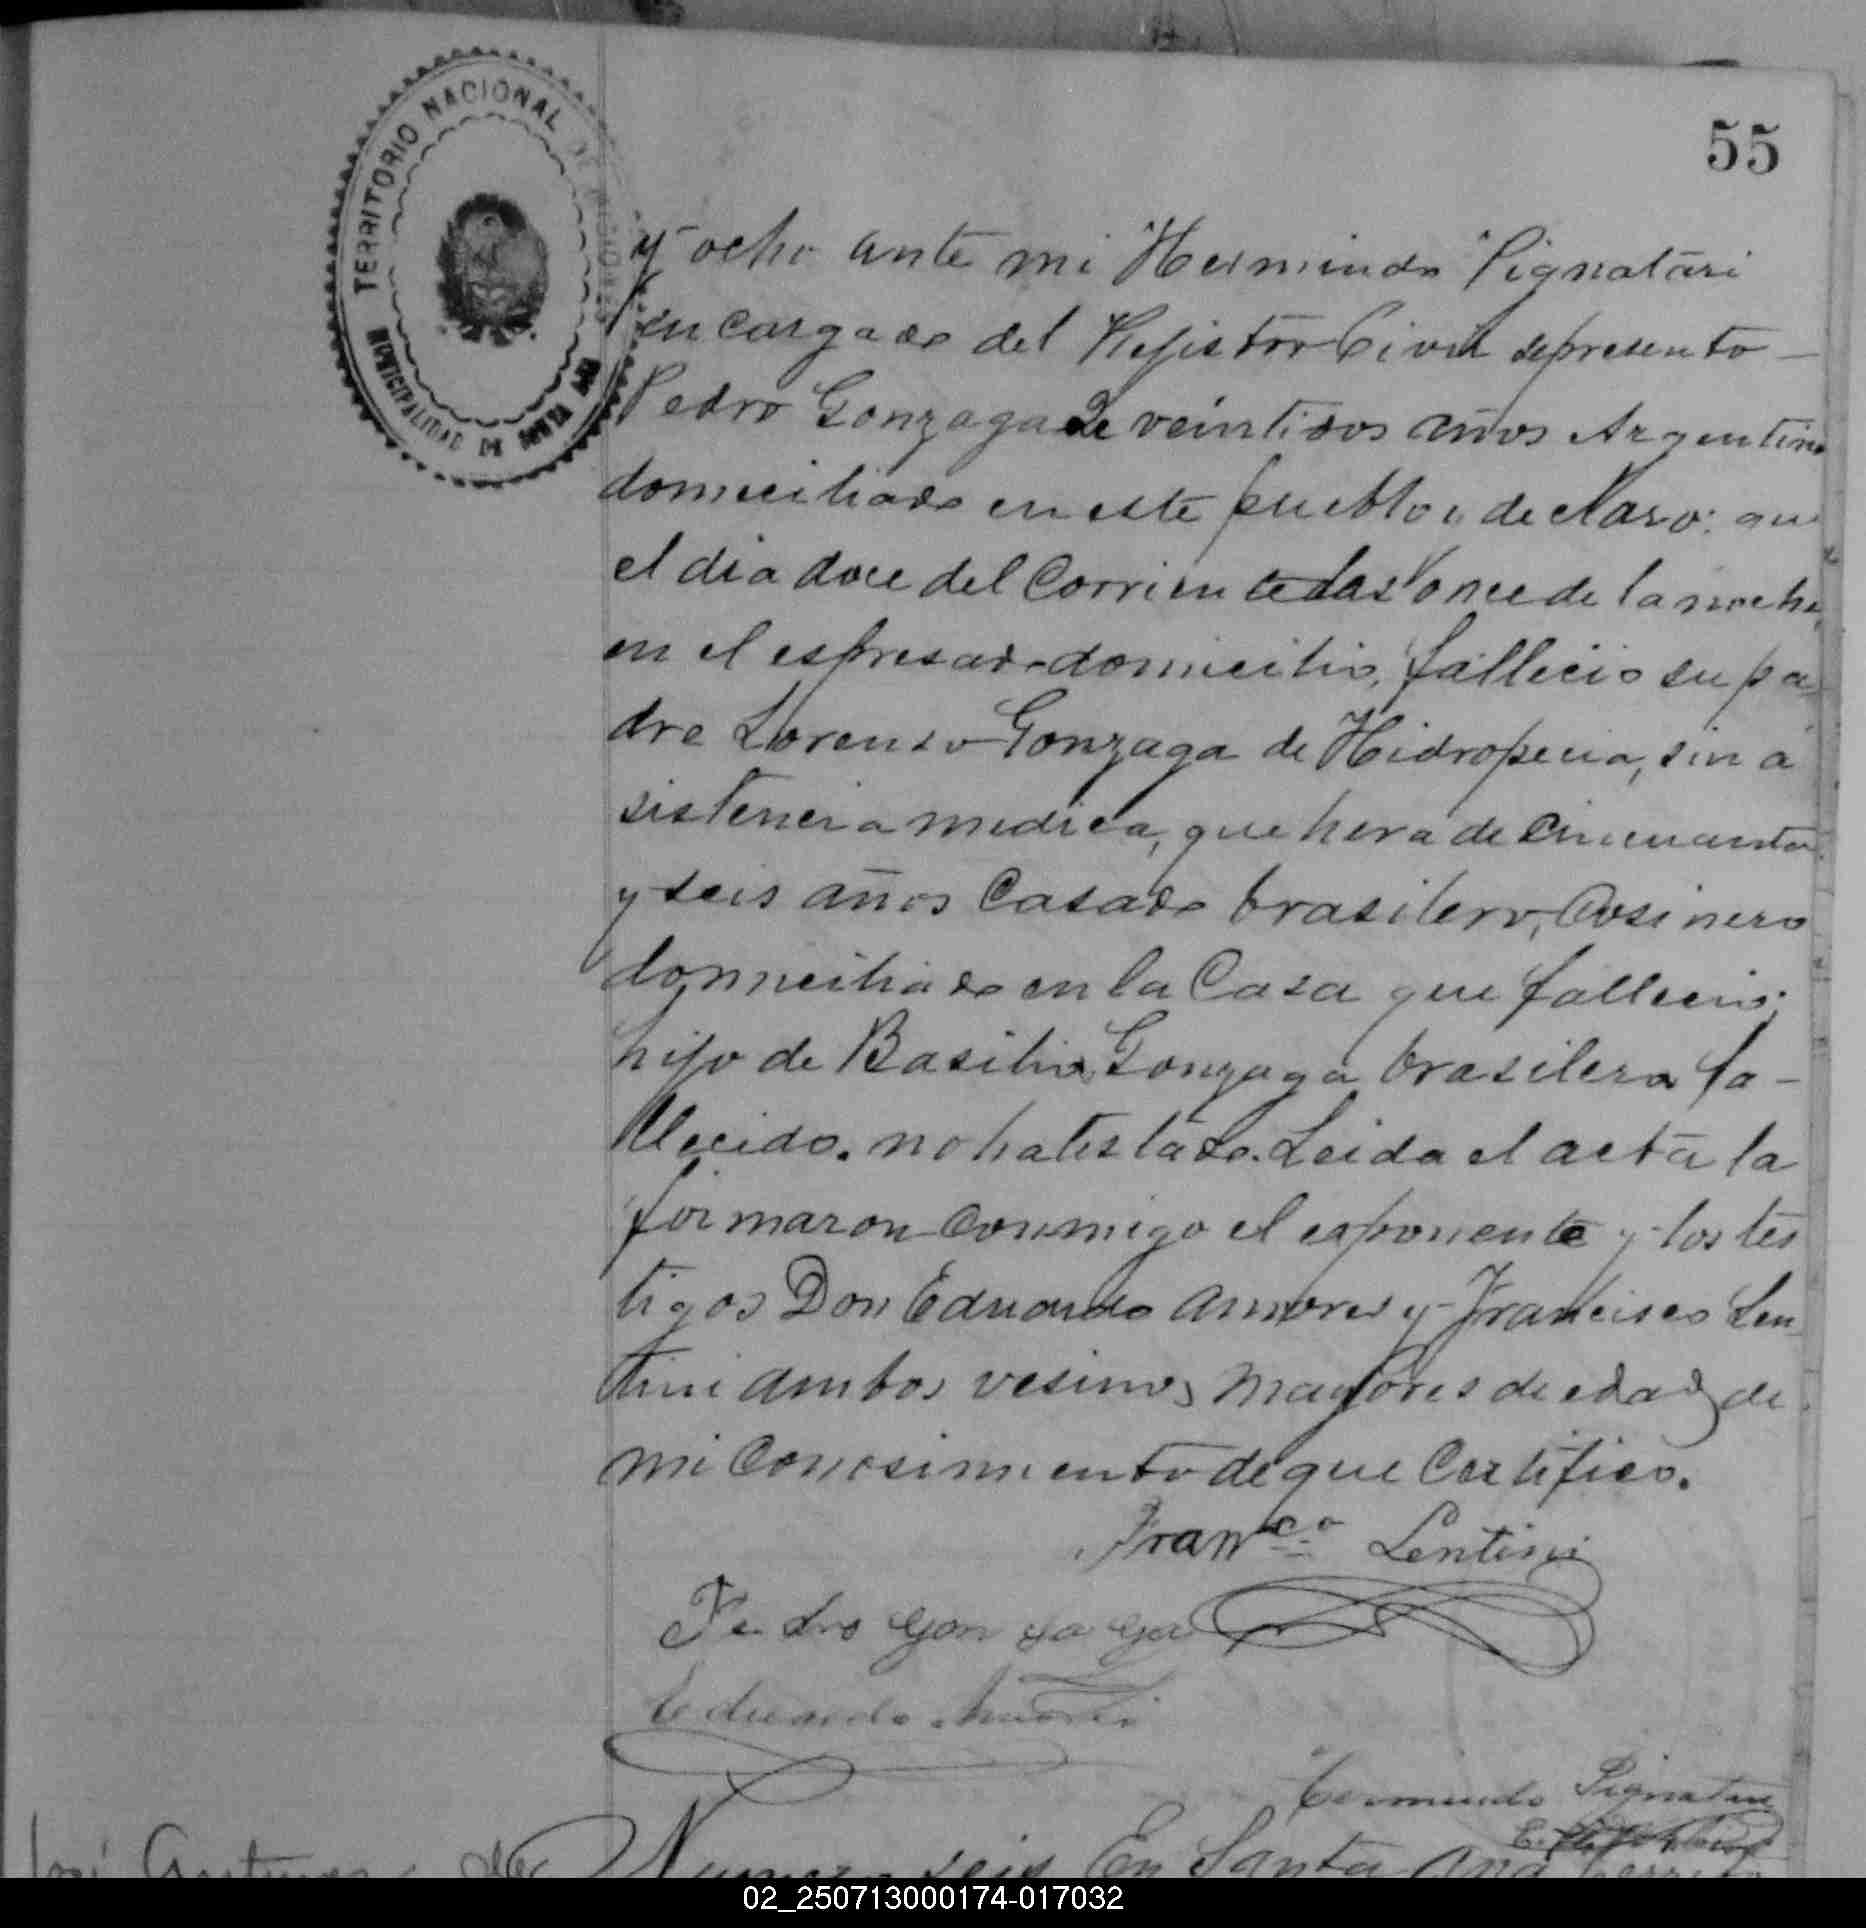 TERRITORIO NACIONAL DE MISIONES
MUNICIPALIDAD DE SANTA ANA
55
y ocho ante mi Hermindo Pignatari
encargado del Rejistro Civil se presento
Pedro Gonzaga de veintidos años Argentino
domiciliado en este pueblo y declaro: que
el dia doce del corriente a las once de la noche,
en el espresado domicilio, fallecio su pa
dre Lorenzo Gonzaga de Hidropecia, sin a
sistencia medica, que hera de cincuenta
y seis años casado brasilero, cosinero
domiciliado en la casa que fallecio;
hijo de Basilio Gonzaga brasilero fa-
llecido. no ha testado. Leida el acta la
firmaron conmigo el esponente y los tes
tigos Don Eduardo Amores y Francisco Len
tini ambos vesinos mayores de edad de
mi conosimiento de que certifico.
Franco. Lentini
Pedro gonzaga
Eduardo
Hermindo Pignatari
José de Numero seis En Santa Ana
02_250713000174-017032